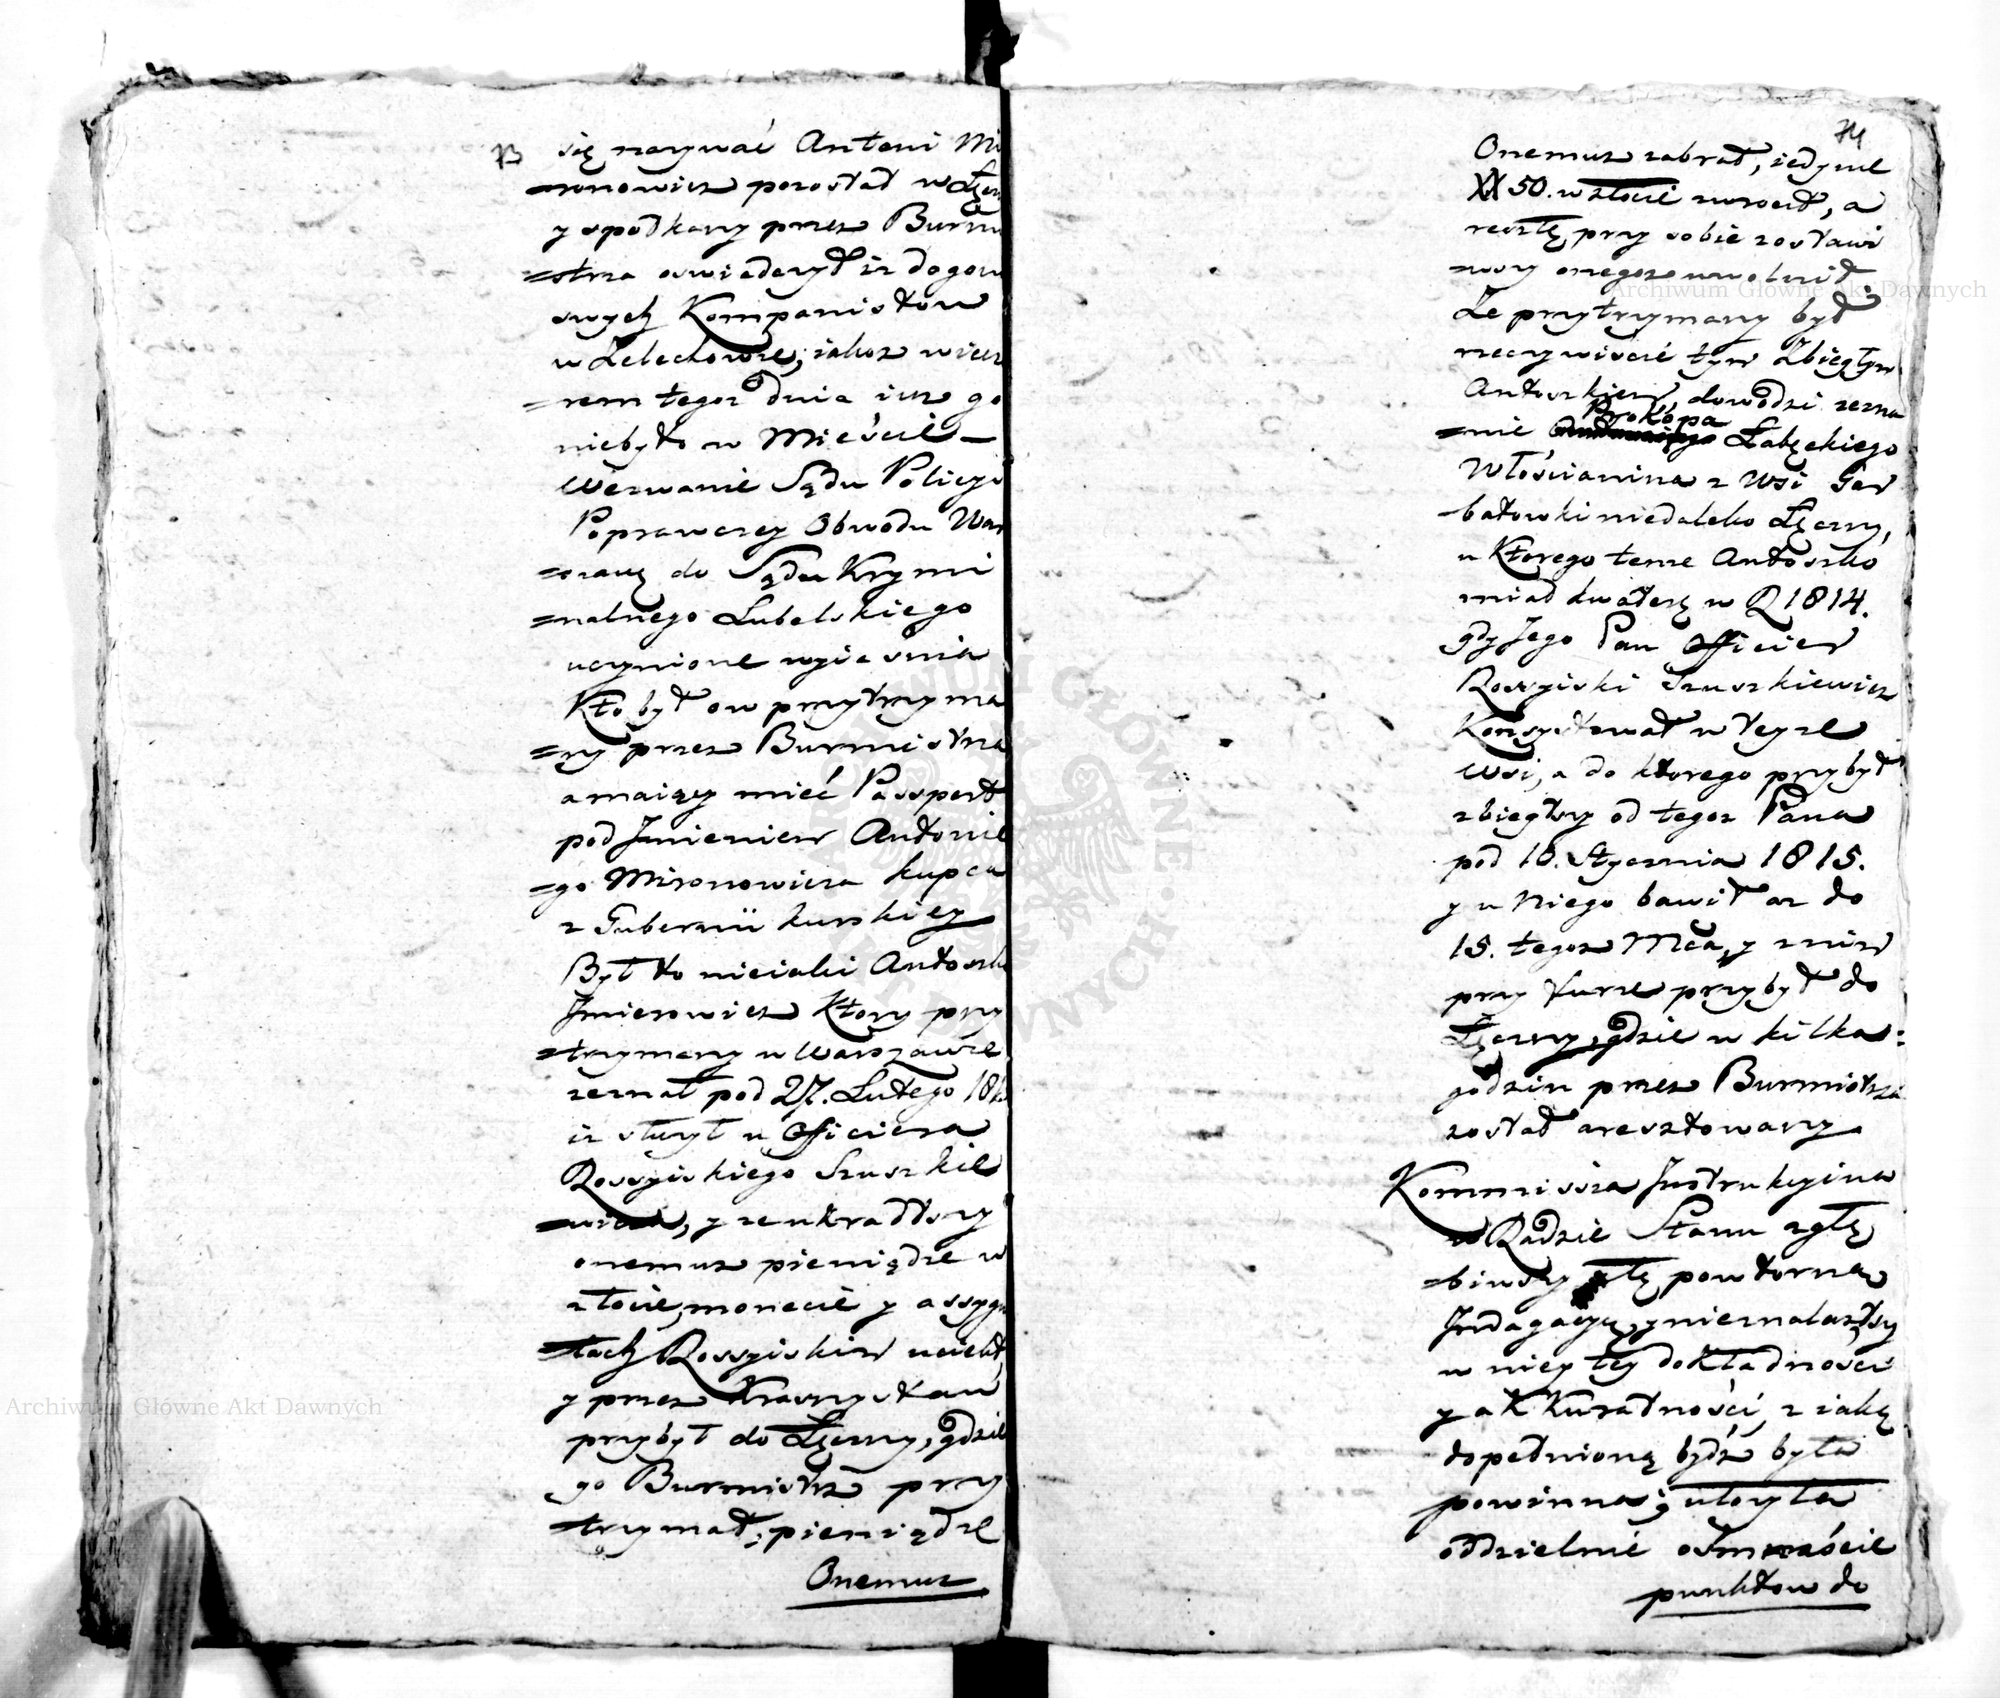 się nazywać Antoni Mi
=ronowicz pozostał w Łęczn
y spotkany przez Burmi
=strza oswiadczył iz dogon
swych Kompanistow
w Żelechowie; iakoz wieczo
=rem tegoz dnia iuz go
niebyło w Mieście —
Wezwanie Sądu Policyi
Poprawczey Obwodu War
=szawę do Sądu Krymi
=nalnego Lubelskiego
uczynione wyiasnia
Kto był ow przytrzyma
=ny przez Burmistrza
a maiący mieć Passport
pod Jmieniem Antonie
=go Mironowicza kupca
z Gubernii kurskiey
Był to nieiaki Antoszko
Jmierowicz ktory przy
=trzymany w Warszawie
zeznał pod 27. Lutego 181
iz słuzył u Officiera
Rossyiskiego Szuszkie
=wicza, y ze ukradłszy
onemuz pieniądze w
złocie, monecie y assygn
=tach Rossyiskich uciekł,
y przez Krasnystaw
przybył do Łęczny, gdzie
go Burmistrz przy
=trzymał; pieniądze
Onemuz
74
Onemuz zabrał, iedynie
XX 50. w złocie zwrocił, a
resztę przy sobie zostawi
=wszy onegoz uwolnił.
Że przytrzymany był
rzeczywiście tym Zbiegłym
Antoszkiem, dowodzi zezna
Prokopa
=nie Łabęckiego
Włościanina z Wsi Gar
=batowki niedaleko Łęczny,
u Ktorego tenze Antoszko
miał kwaterę w R 1814.
gdy Jego Pan Officier
Rossyiski Szuszkiewicz
Konsystował w teyze
Wsi, a do ktorego przybył
zbiegłszy od tegoz Pana
pod 10. Stycznia 1815.
y u Niego bawił az do
15. tegoz Mca, y z nim
przy furze przybył do
Łęczny, gdzie w kilka=
godzin przez Burmistrza
został aresztowany
Kommissia Jnstrukcyina
w Radzie Stanu zgłę
=biwszy tę powtorną
Jndagacyę, y nieznalazłszy
w niey tey dokładności
y akkuratności, z iaką
dopełnioną bydź była
powinna; ułozyła
oddzielnie osmnaście
punktow do